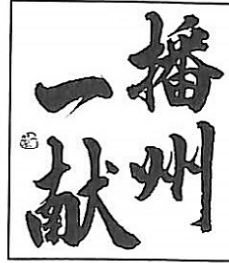 播州
一献